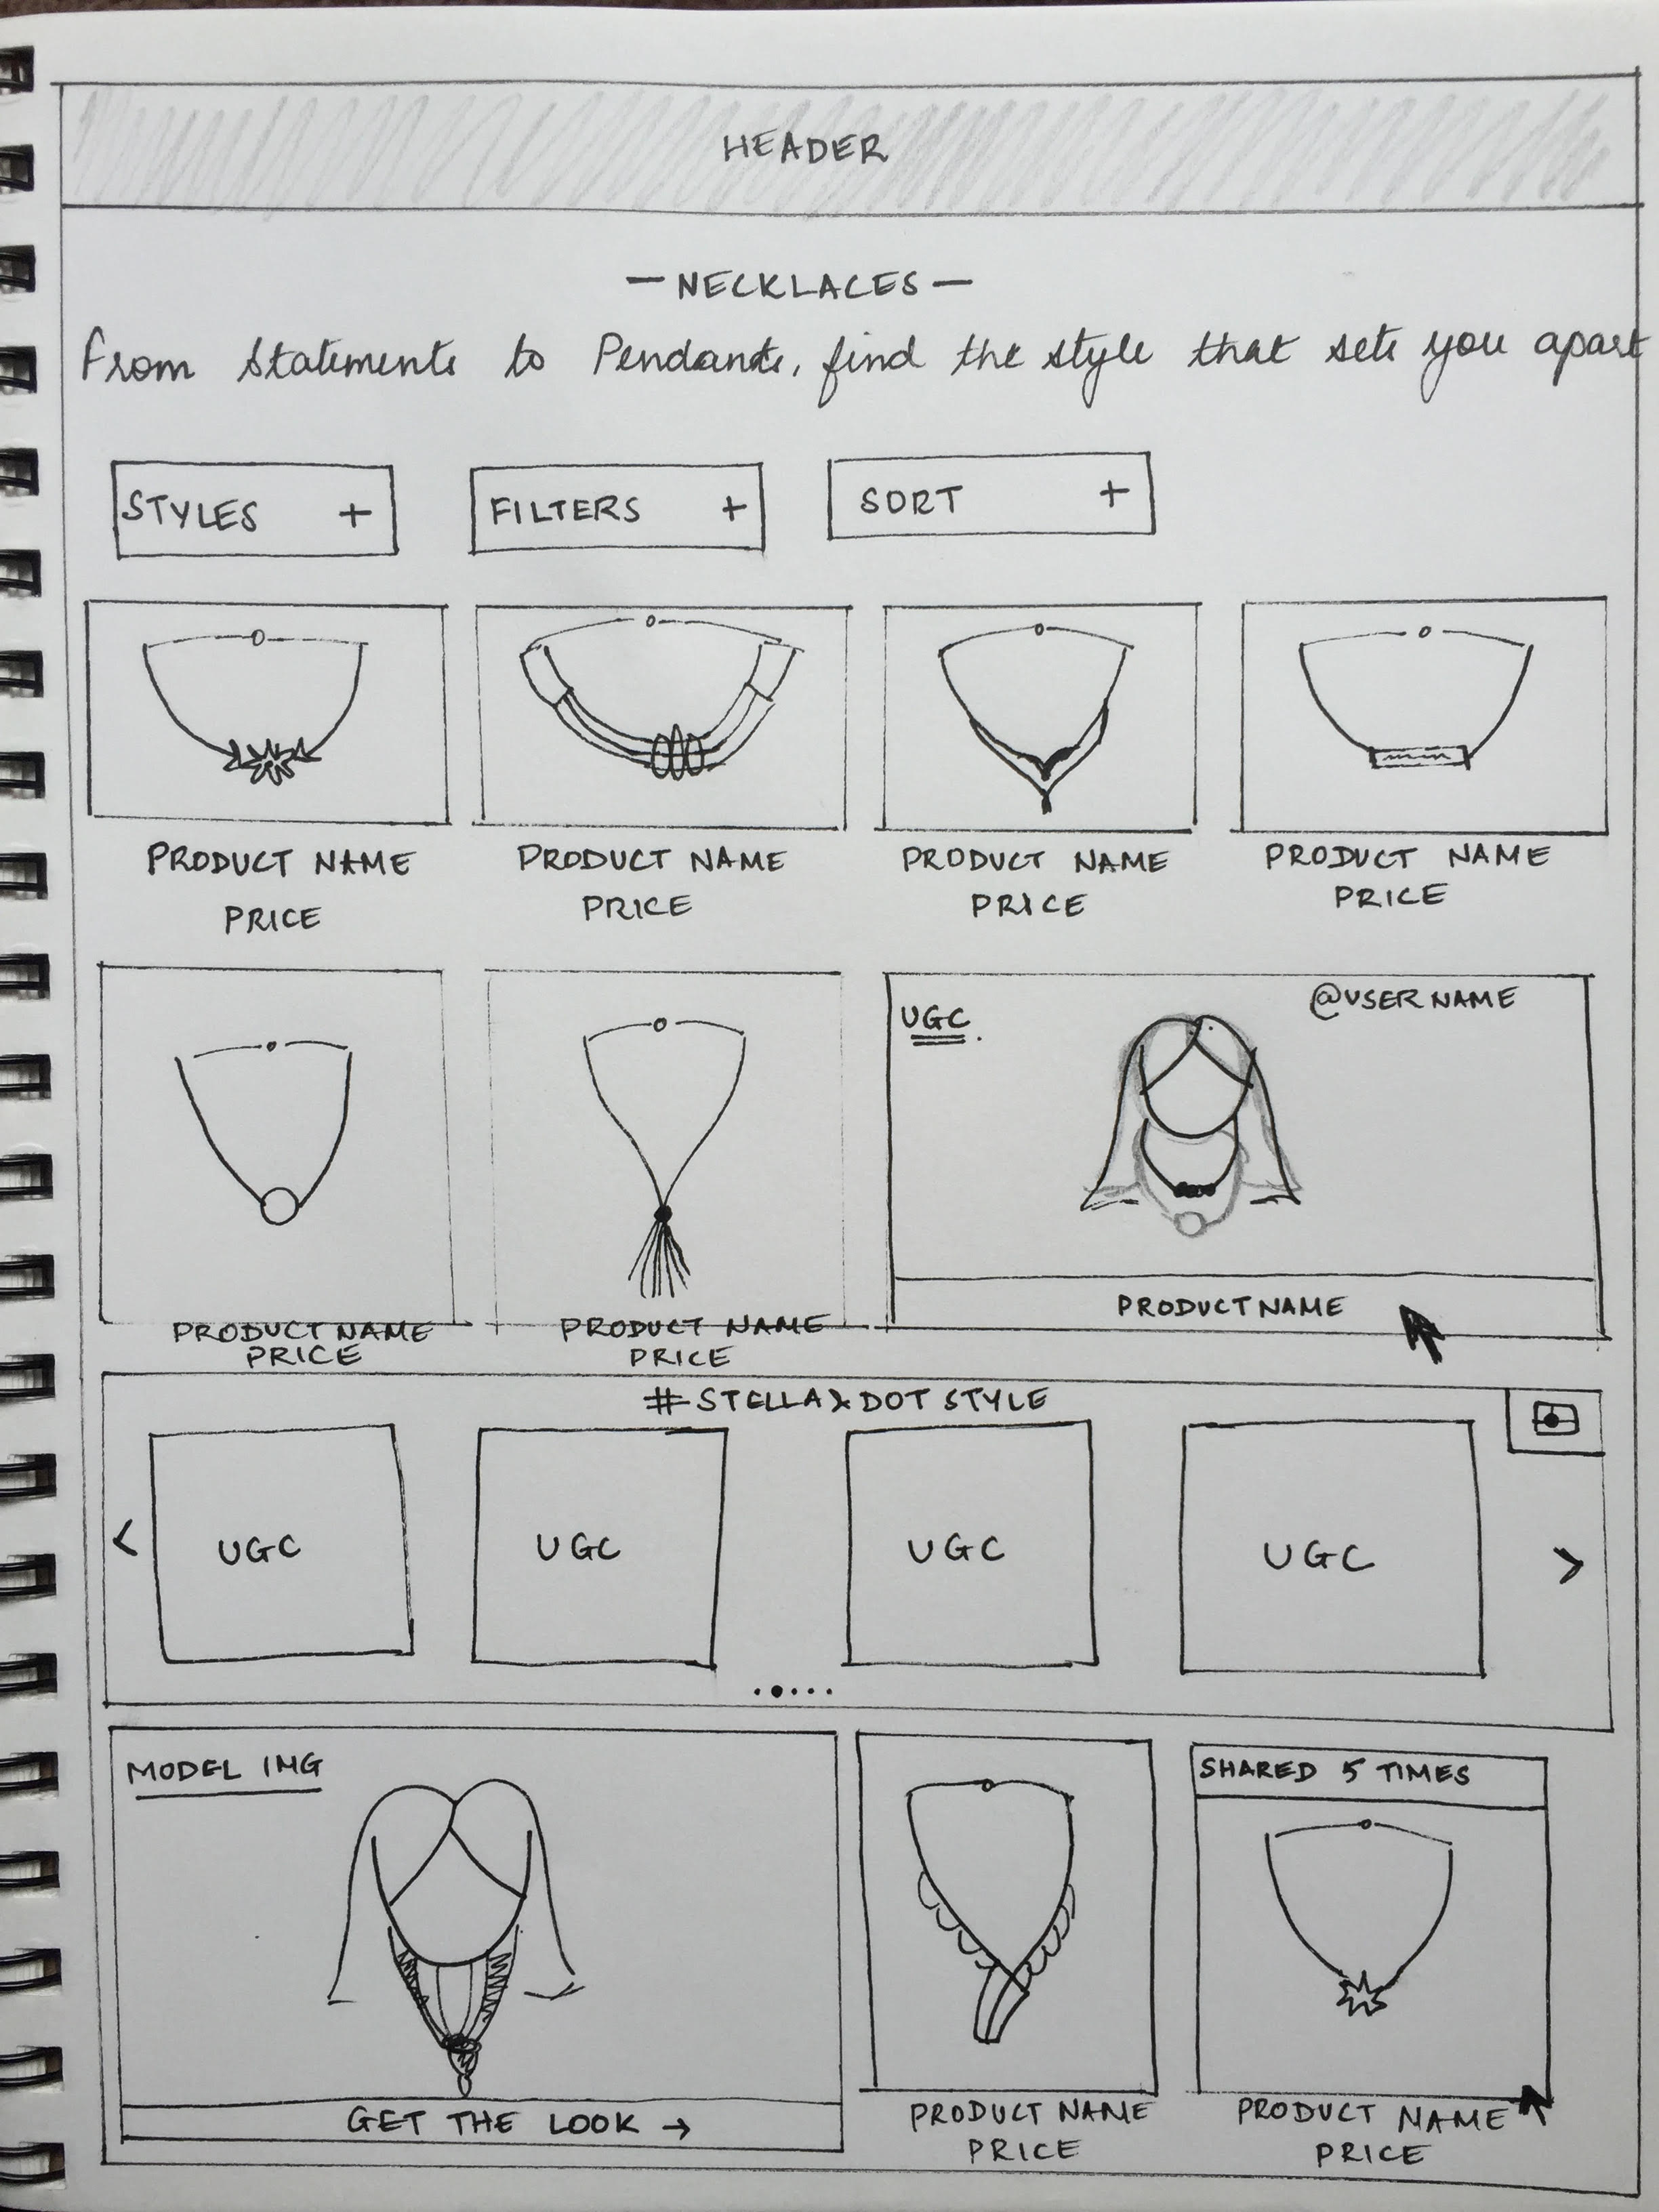 HEADER
— NECKLACES —
From Statements to Pendants, find the style that sets you apart
STYLES +
FILTERS +
SORT +
PRODUCT NAME
PRICE
PRODUCT NAME
PRICE
PRODUCT NAME
PRICE
PRODUCT NAME
PRICE
PRODUCT NAME
PRICE
PRODUCT NAME
PRICE
UGC.
@USERNAME
PRODUCT NAME
#STELLA&DOT STYLE
<
UGC
UGC
UGC
UGC
>
MODEL IMG
GET THE LOOK →
PRODUCT NAME
PRICE
SHARED 5 TIMES
PRODUCT NAME
PRICE